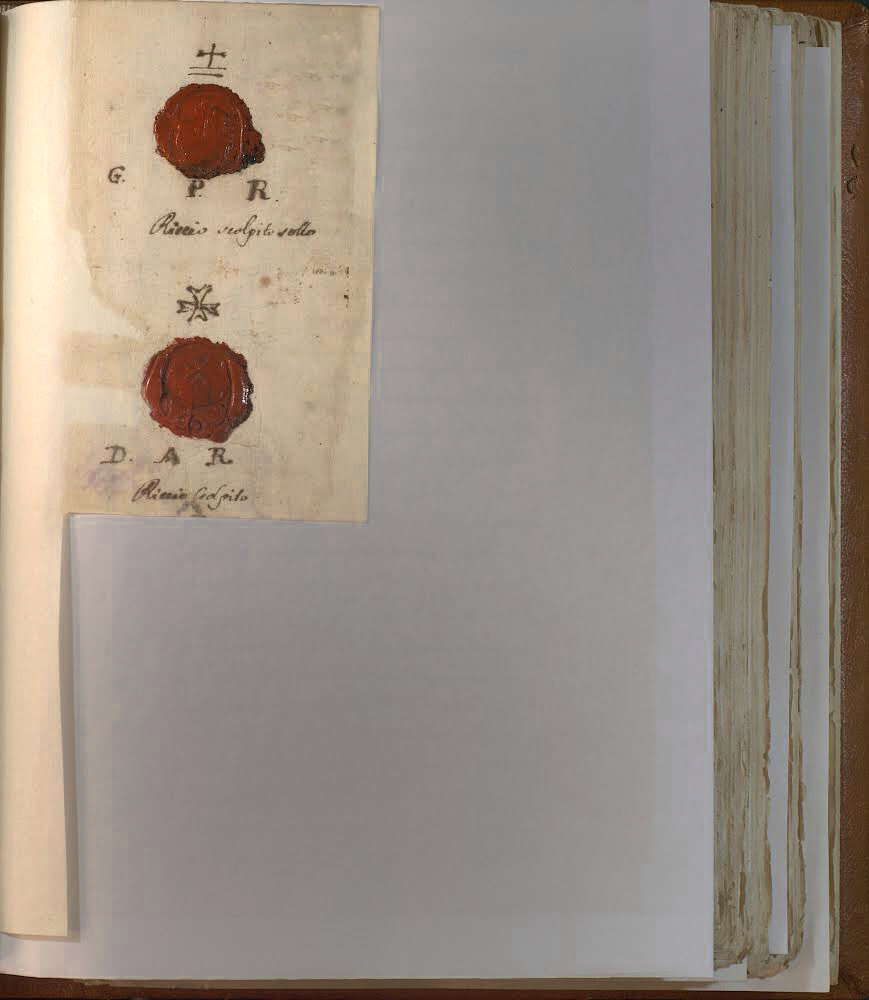 G. P. R.
Riccio scolpito sotto
D. A R.
Riccio scolpito